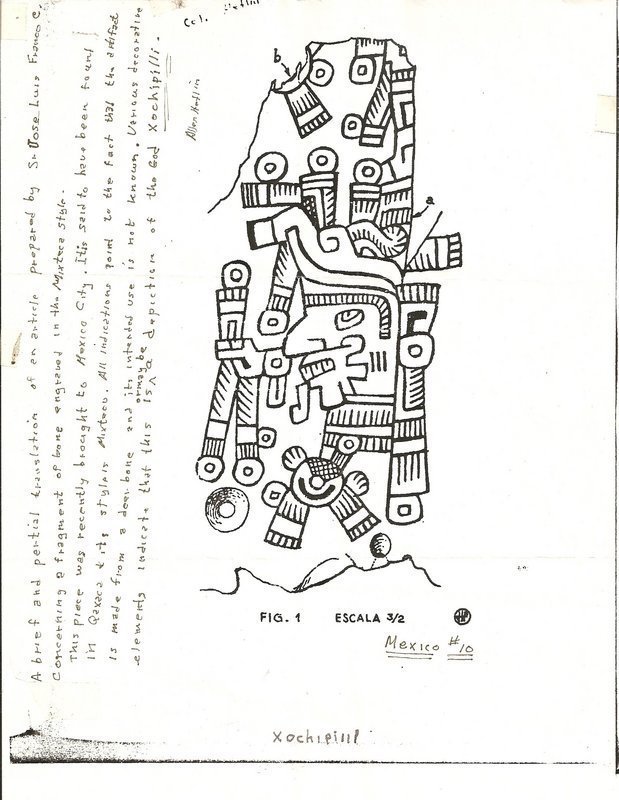 Col. Heflin
A brief and partial translation of an article prepared by Sr. Jose Luis Franco C.
Concerning a fragment of bone engraved in the Mixteca style.
This piece was recently brought to Mexico City. It is said to have been found
in Oaxaca & its style is Mixteco. All indications point to the fact that the artifact
is made from a deer bone and its intended use is not known. Various decorative
elements indicate that this is or maybe a depiction of the God Xochipilli.
Allen Heflin
b
a
FIG. 1 ESCALA 3/2
Mexico #10
Xochipilli